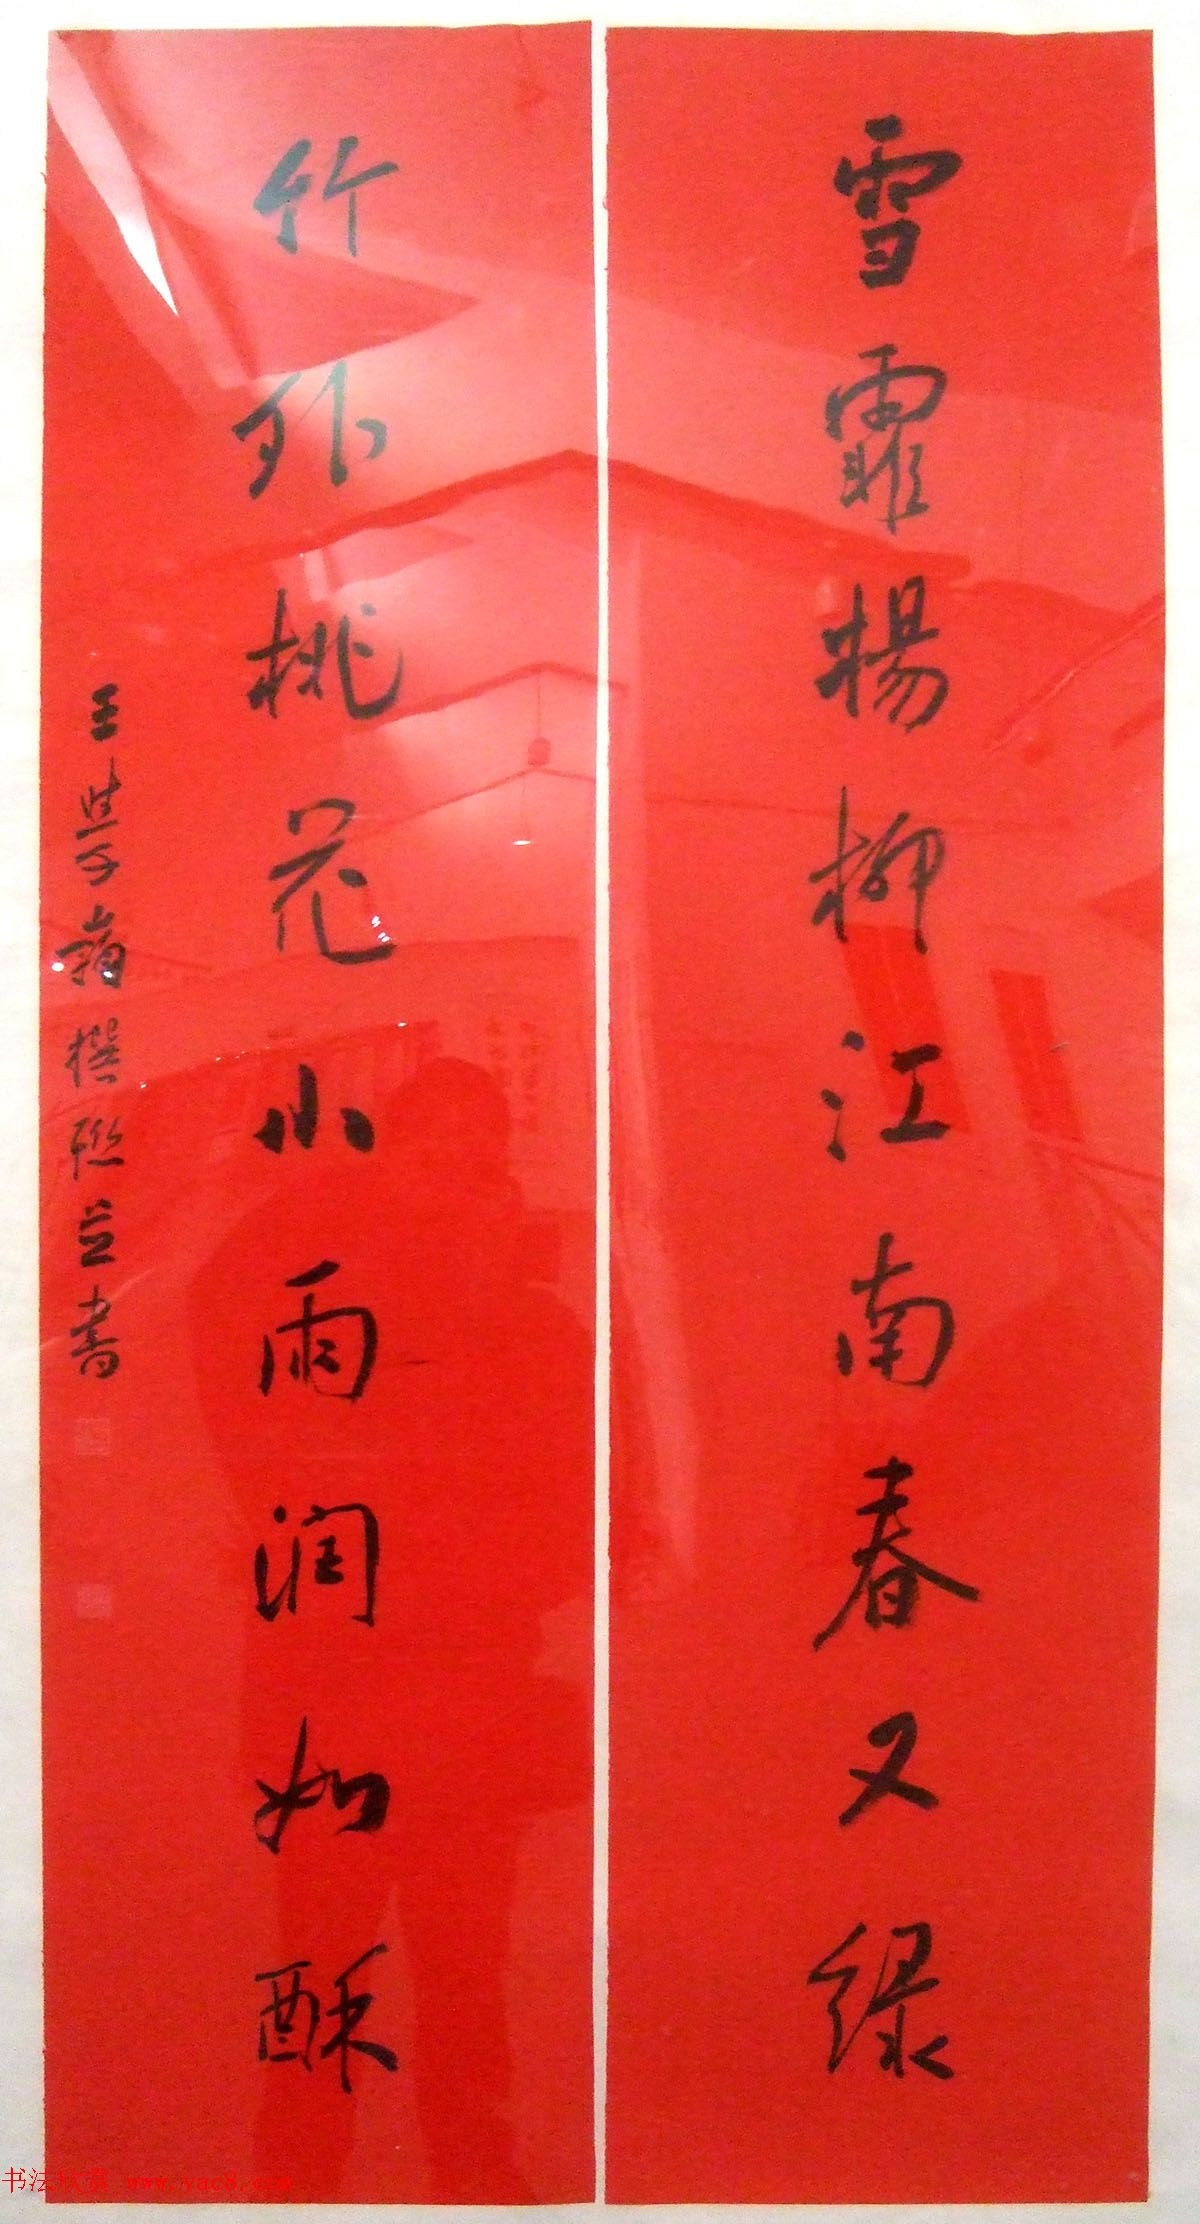 雪霏楊柳江南春又綠
竹外桃花小雨潤如酥
王學嶺撰聯並書
书法欣赏 www.yac8.com